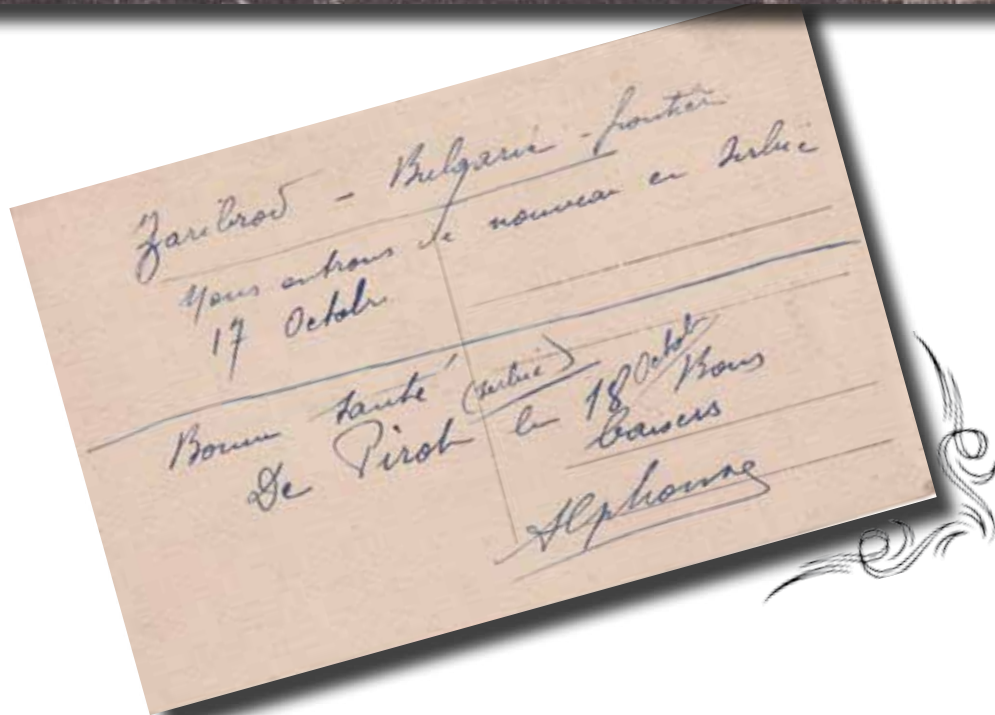 Zaribrod - Bulgarie - frontière
Nous entrons de nouveau en Serbie
17 Octobre
Bonne santé
De Pirot (Serbie) le 18 Octob
Bons
baisers
Alphonse